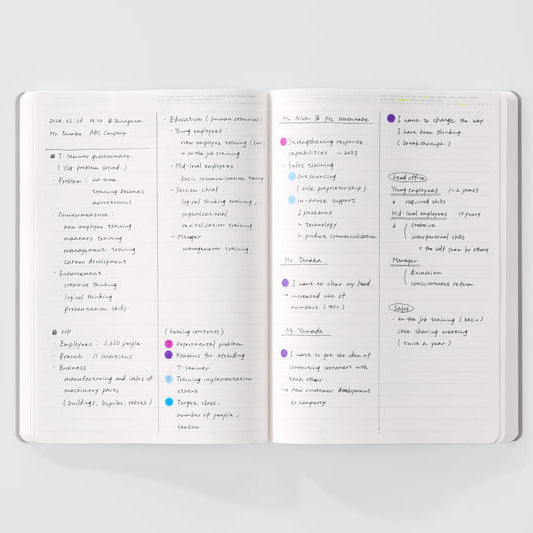 2024.02.01 14:00 @ Shinagawa
Mr. Tanaka ABC Company
T-Seminar questionnaire
( 1/28 problem solved )
・Problem : no time
training becomes
monotonous
・Countermeasure :
new employee training
manners training
management training
career development
・Enhancement :
creative thinking
logical thinking
presentation skills
HP
・Employees : 3,650 people
・Branch : 11 locations
・Business :
manufacturing and sales of
machinery parts
( buildings, bicycles, robots )
・Education ( human resources )
- Young employees :
new employee training
→ on the job training
- Mid-level employees :
basic communication training
- Section chief
logical thinking training,
organizational
revitalization training
- Manager
management training
( hearing contents )
Departmental problem
Reasons for attending
T-Seminar
Training implementation
status
Target class,
number of people,
season
Mr. & Ms.
Strengthening response
capabilities ~ 2023
・Sales training
outsourcing
( sole proprietorship )
in-house support
2 patterns
↳ technology
↳ product commercialization
Mr. Tanaka
I want to clear my head.
→ increased use of
numbers
Mr. Yamada
I want to get the idea of
connecting customers with
each other
→ new customer development
by company
I want to change the way
I have been thinking
( breakthrough )
head office
Young employees 1~2 years
↓ required skills
Mid-level employees 10 years
↓ creative
interpersonal skills
→ the self seen by others
Manager
discussion
consciousness reform
Sales
・on the job training ( basic )
case sharing meeting
( twice a year )